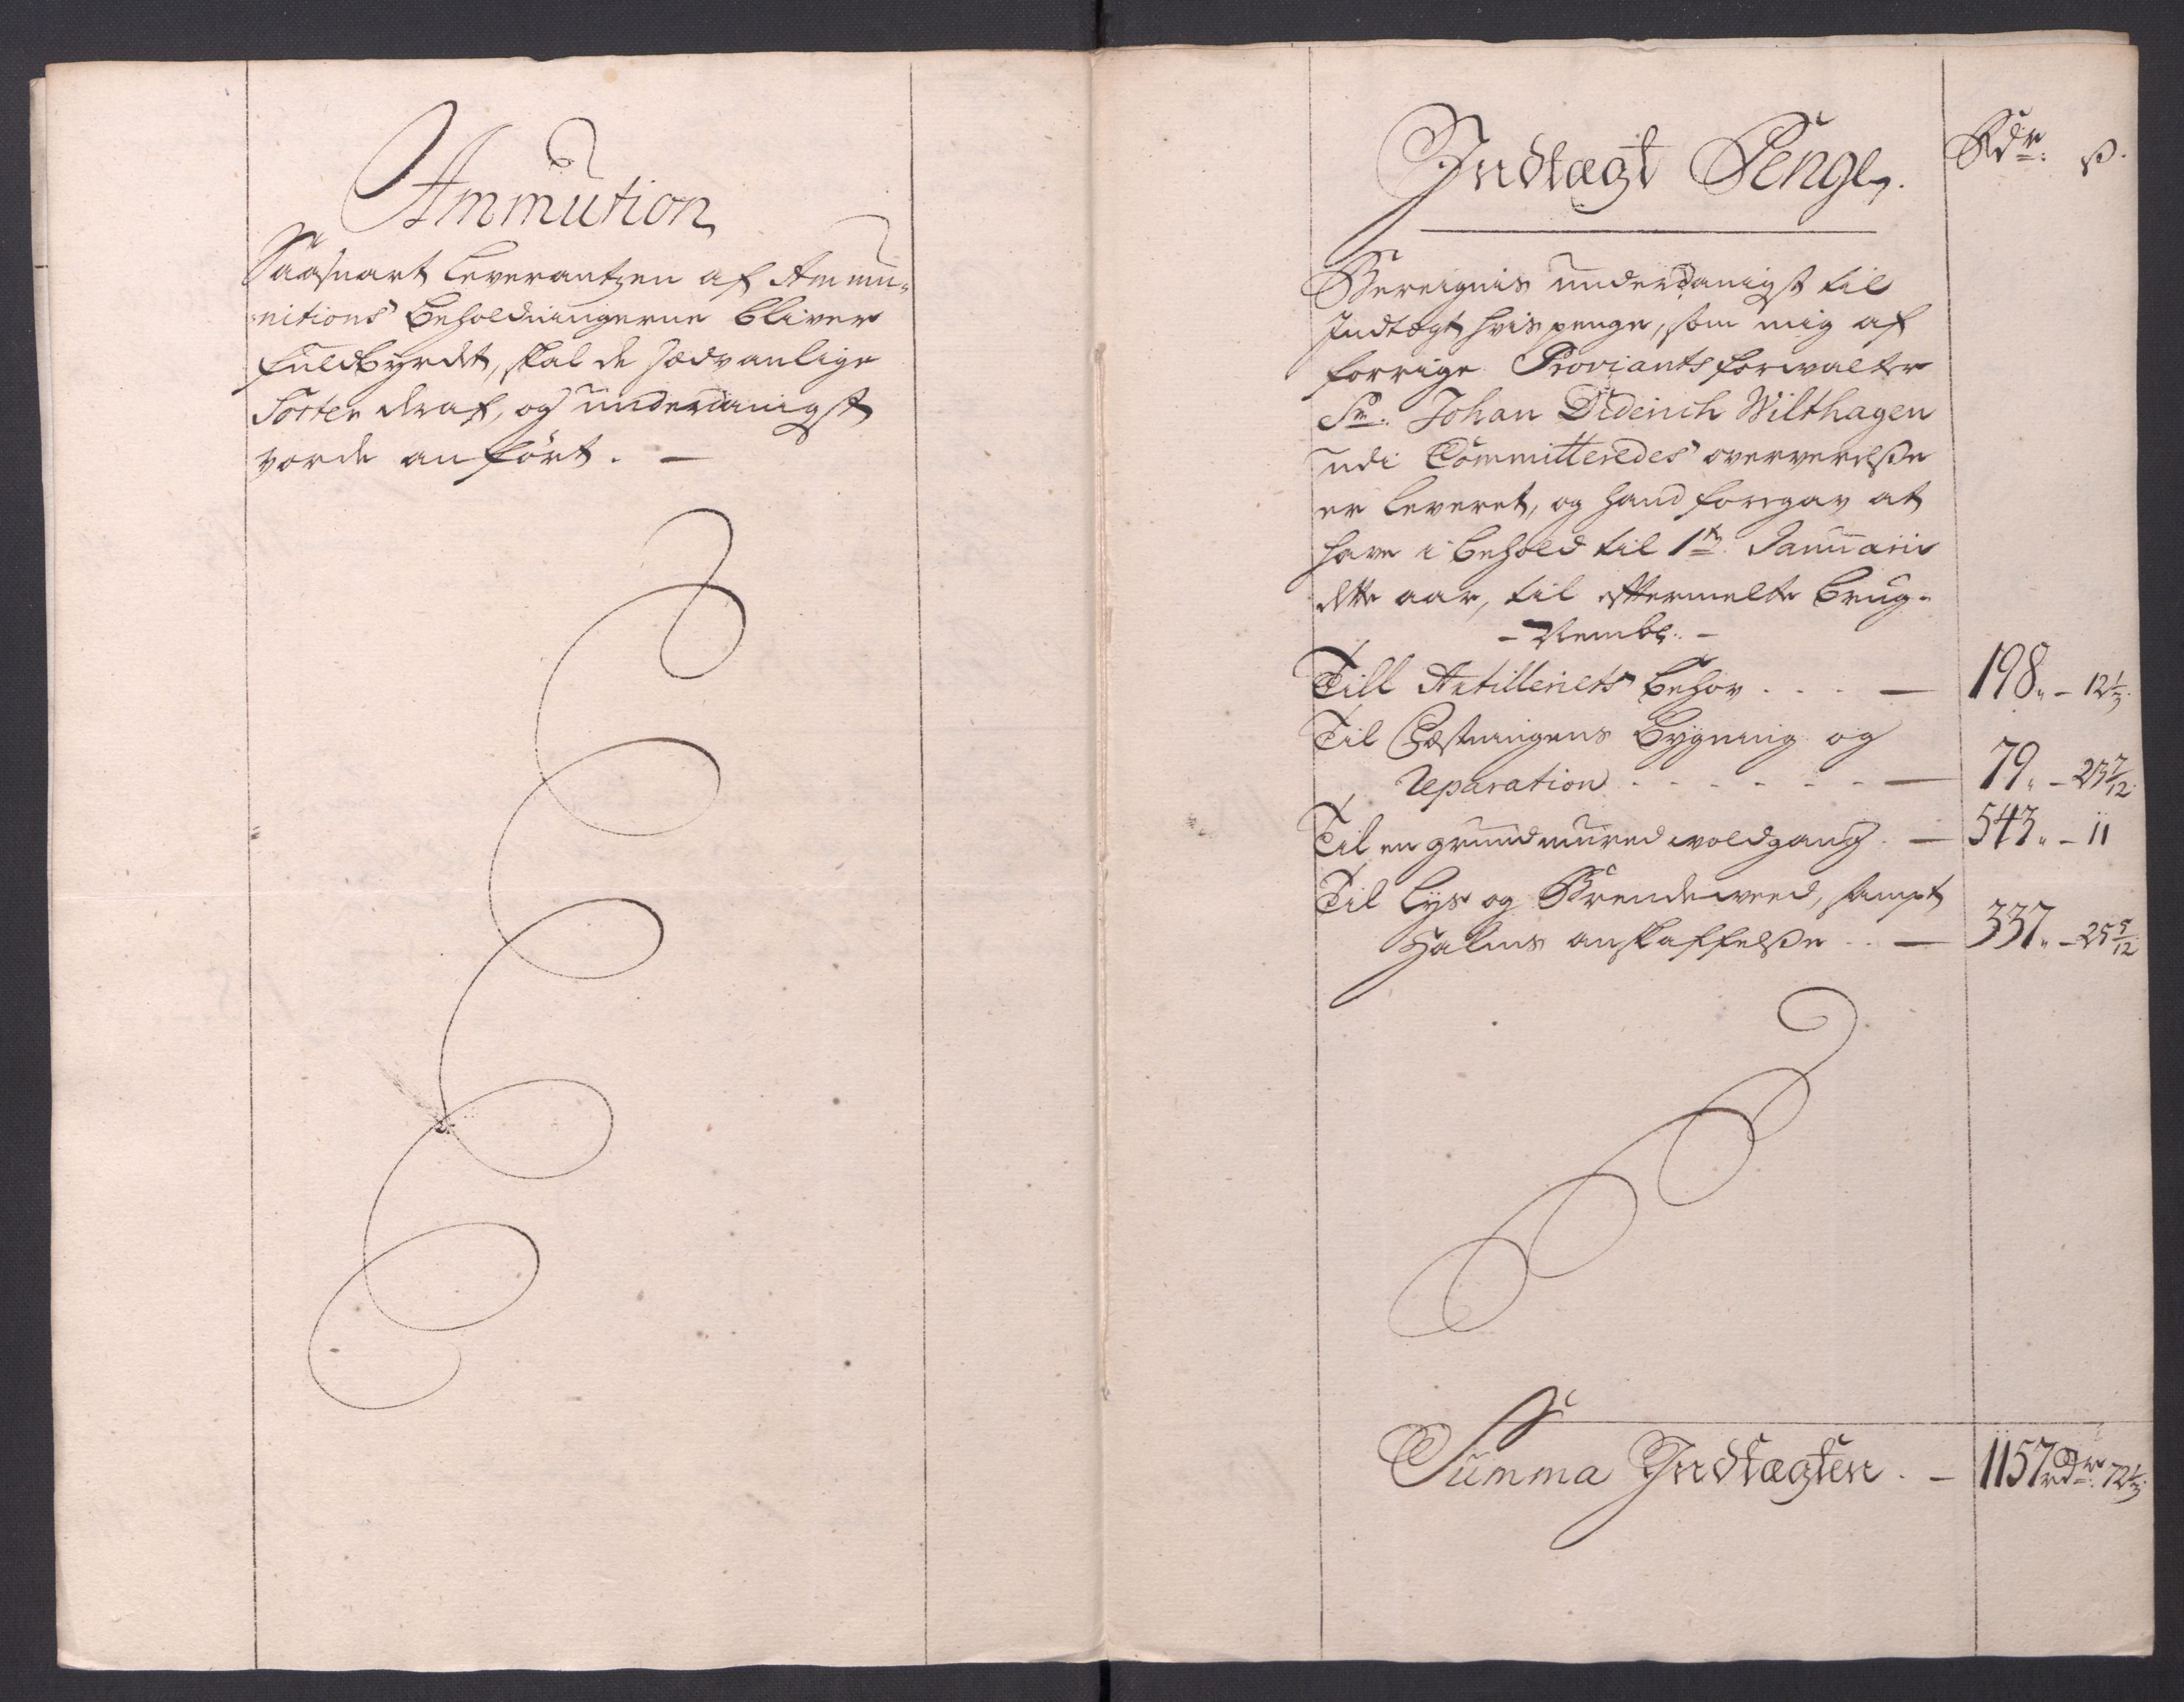 Ammution
Saasnart leverantzen af Ammu-
nitions beholdningerne bliver
fuldbyrdet, skal de sædvanlige
Sorter deraf, og underdanigst
vorde anført. —
Indtægt Penge.
Rdr. ß.
Beregnis underdanigst til
Indtægt hvis penge, som mig af
forrige Proviantsforvalter
Sr. Johan Diderich Wilthagen
udi Committeredes oververelße
er leveret, og hand foregav at
have i behold til 1te Januarii
dette aar, til eftermelte brug.
- Nembl. -
Till Artilleriets behov . . . — 198. - 12 1/3.
Til Fæstningens bygning og
reparation . . . . . . — 79. - 23 7/12.
Til en grundmured voldgang . — 543. - 11
Til lys og Brendeveed, sampt
halms anskaffelße . . — 337. - 25 5/12
Summa Indtægten . - 1157 rdr. 72 1/3.